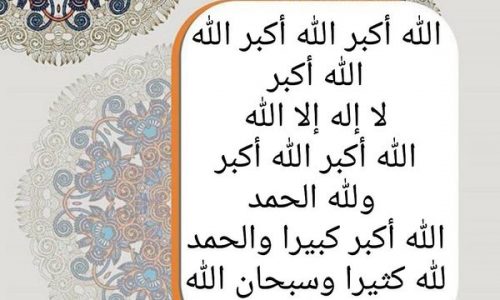 الله أكبر الله أكبر الله
الله أكبر
لا إله إلا الله
الله أكبر الله أكبر
ولله الحمد
الله أكبر كبيرا والحمد
لله كثيرا وسبحان الله